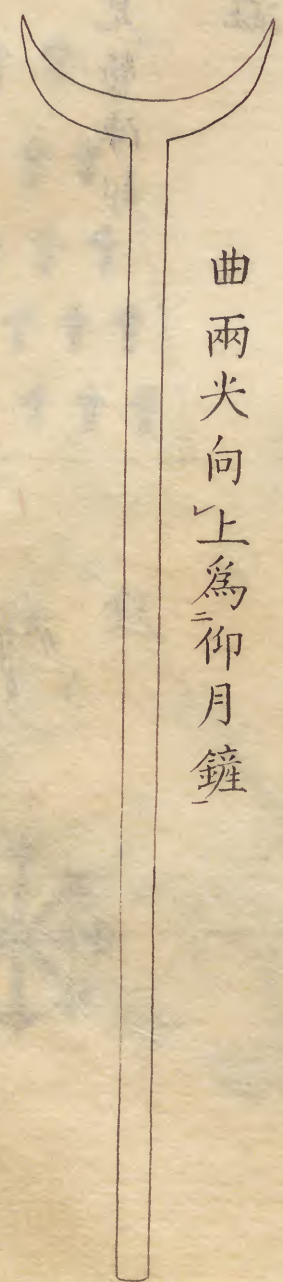 曲兩尖向㆑上爲㆓仰月鏟㆒